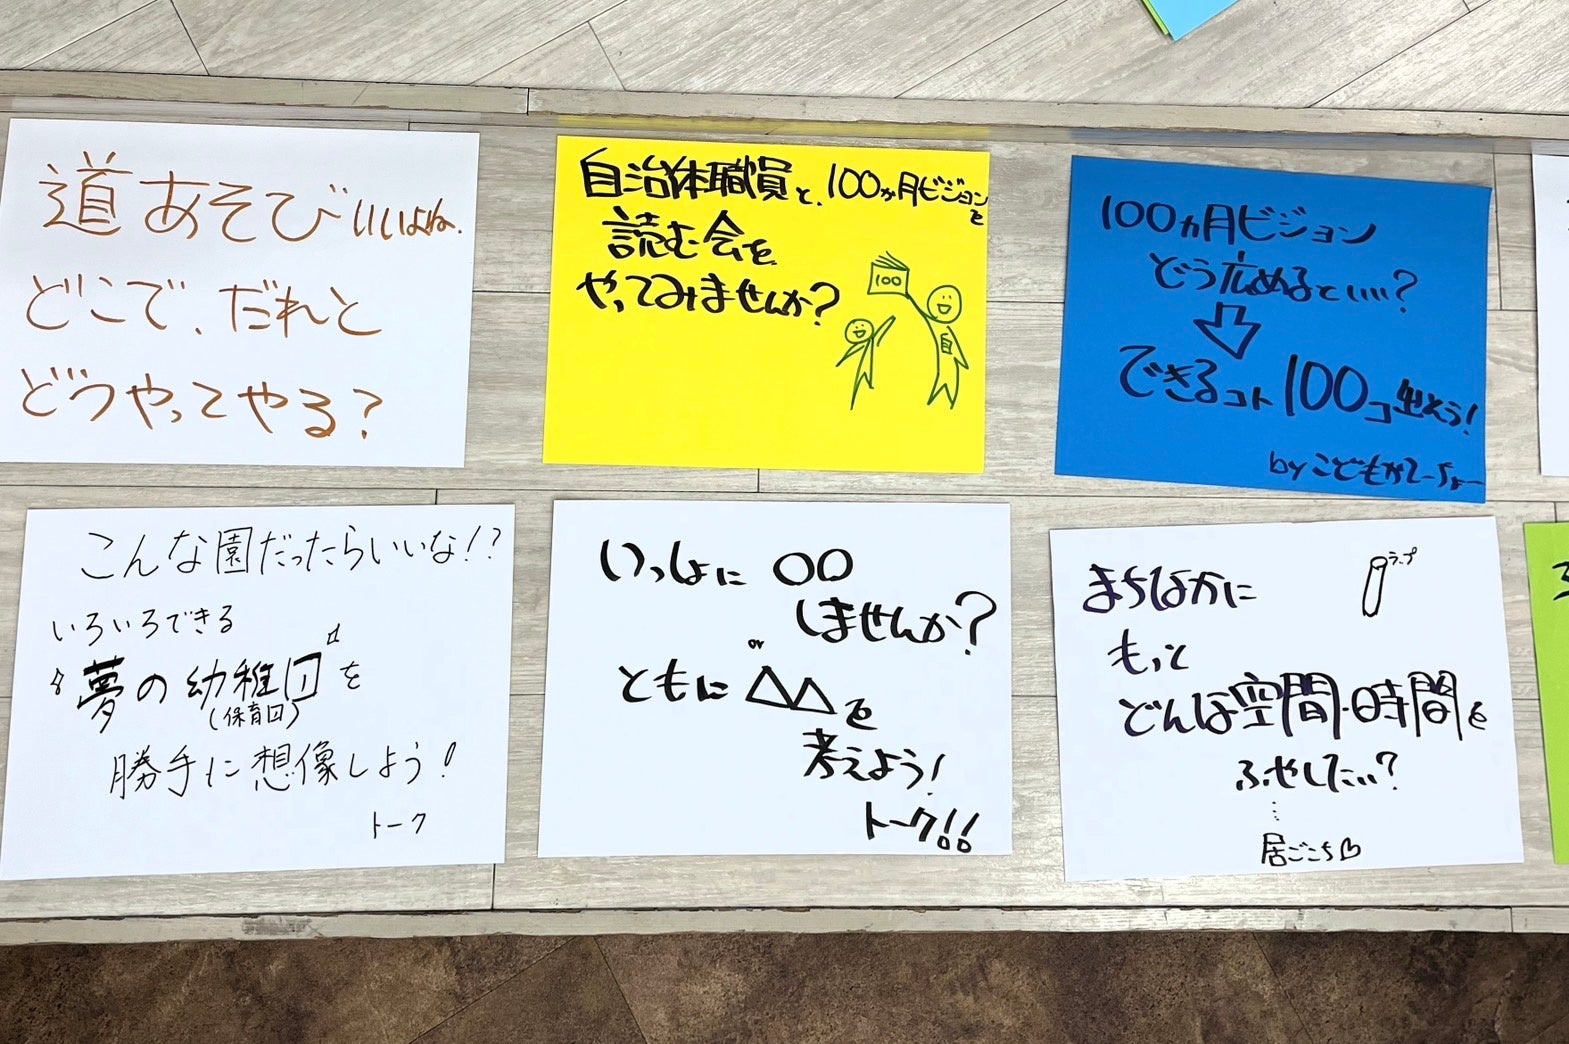 道あそびいいよね.
どこで、だれと
どうやってやる?
自治体職員と、100か月ビジョンを
読む会を
やってみませんか?
100
自
100カ月ビジョン
どう広めるといい?
できるコト100コ出そう!
by こどもかてーちょー
こんな園だったらいいな!?
いろいろできる
夢の幼稚园を
(保育口)
勝手に想像しよう!
トーク
いっしょに 〇〇
しませんか?
or
ともに △△を
考えよう!
トーク!!
ラップ
まちなかに
もっと
どんな空間・時間を
ふやしたい?
居ごこち♡